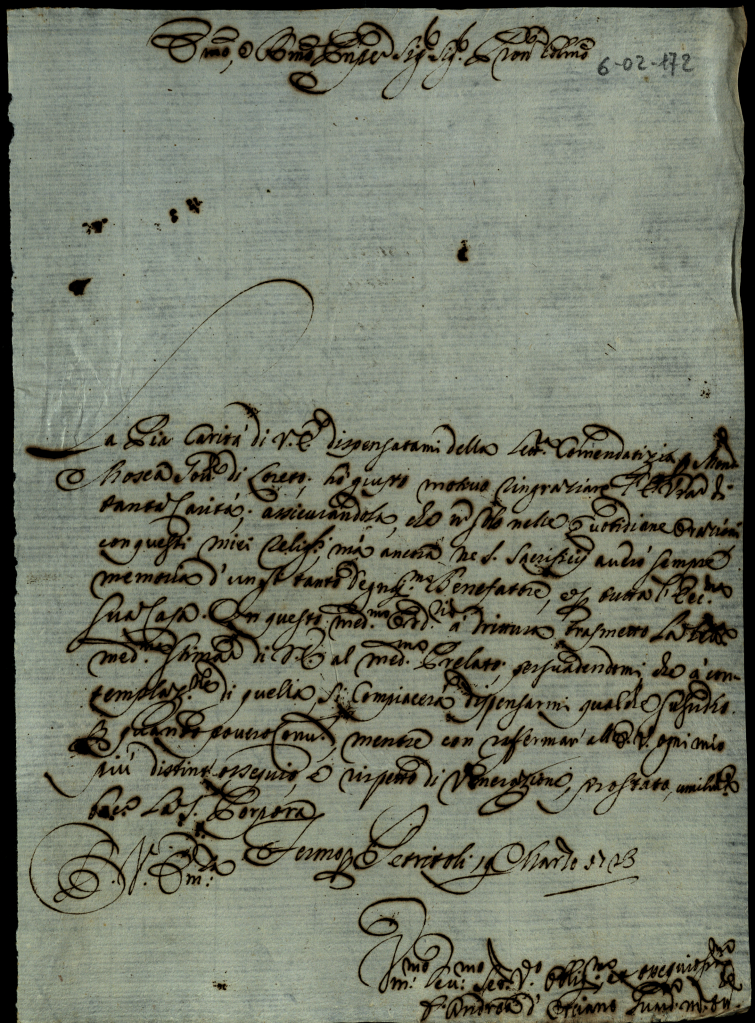 Em̃o, e Rm̃o Prñpe Sig.r Sig.r Pron Colmo
6-02-172
La Pia Carità di V. E. dispensatami della lett.a Comendatizia
Mosca Gov.re di Loreto, hò giusto motivo ringraziare l' E. Vra di
tanta Carità; assicurandola, che nò solo nelle quotidiane Orazioni
con questi miei Relig.si, mà ancora ne S. Sacrificij averò sempre
memoria d'un sì tanto Degniss.mo Benefatore, e tutta l' Ecc.ma
Sua Casa. Con questo med.mo Ord.rio à drittura trasmetto La lett.a
med.ma stimat.a di V. E. al med.mo Prelato, persuadendomi, che à con-
templaz.ne di quella si Compiacerà dispensarmi qualche sussidio
quanto povero Conv.to, mentre con raffermar all' E. V. ogni mio
più distinto ossequio, e rispetto di Venerazione, prostrato, umilm.te
bacio La S. Porpora
D. V. Em.za
Fermo p Petritoli 19 Marzo 1723
Um̃o Dev.mo Ser.v Oblig.mo et ossequios.mo
F. Andrea d'